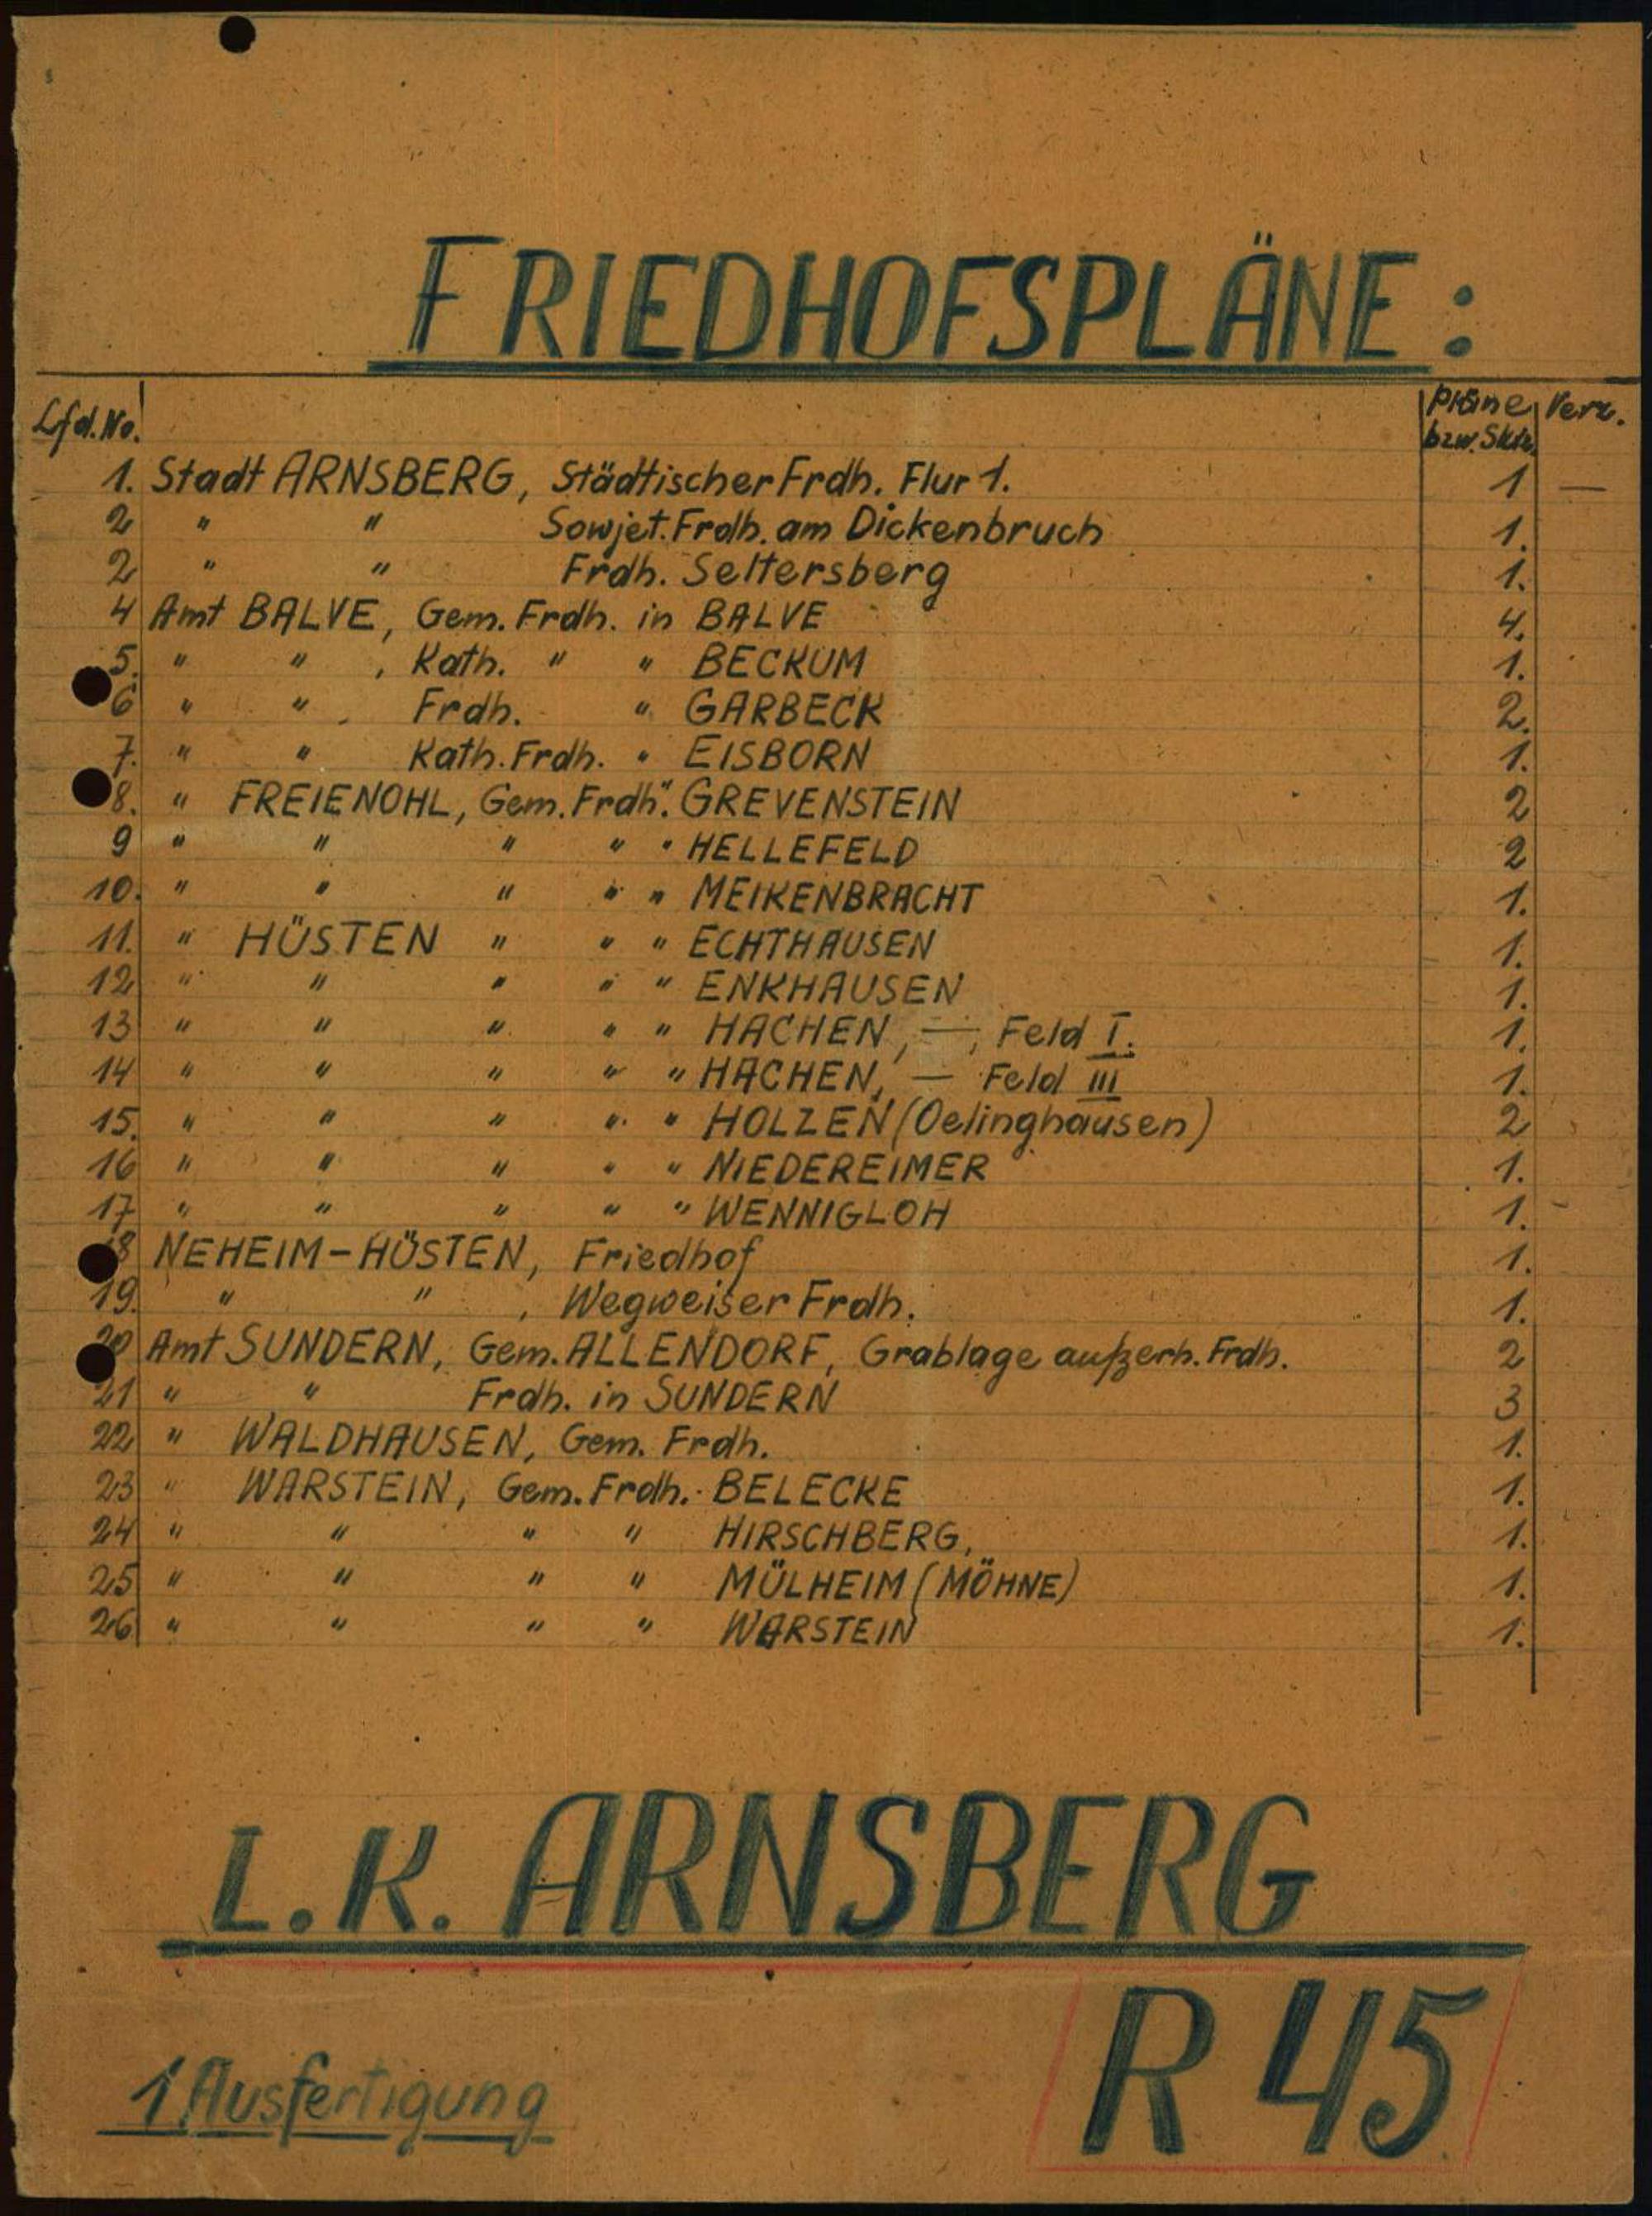 FRIEDHOFSPLÄNE:
Lfd.No. Pläne bzw. Skiz. Verz.
1. Stadt ARNSBERG, Städtischer Frdh. Flur 1. 1 —
2 " " Sowjet. Frdh. am Dickenbruch 1.
2 " " Frdh. Seltersberg 1.
4 Amt BALVE, Gem. Frdh. in BALVE 4.
5. " " , Kath. " " BECKUM 1.
6 " " , Frdh. " GARBECK 2.
7. " " Kath. Frdh. " EISBORN 1.
8. " FREIENOHL, Gem. Frdh. " GREVENSTEIN 2
9 " " " " " HELLEFELD 2
10. " " " " " MEIKENBRACHT 1.
11. " HÜSTEN " " " ECHTHAUSEN 1.
12 " " " " " ENKHAUSEN 1.
13 " " " " " HACHEN, —, Feld I. 1.
14 " " " " " HACHEN, — Feld III 1.
15. " " " " " HOLZEN (Oelinghausen) 2
16 " " " " " NIEDEREIMER 1.
17 " " " " " WENNIGLOH 1.
18 NEHEIM-HÜSTEN, Friedhof 1.
19. " " , Wegweiser Frdh. 1.
20 Amt SUNDERN, Gem. ALLENDORF, Grablage außerh. Frdh. 2
21 " " Frdh. in SUNDERN 3
22 " WALDHAUSEN, Gem. Frdh. 1.
23 " WARSTEIN, Gem. Frdh. BELECKE 1.
24 " " " " HIRSCHBERG, 1.
25 " " " " MÜLHEIM (MÖHNE) 1.
26 " " " " WARSTEIN 1.
L.K. ARNSBERG
R 45
1 Ausfertigung